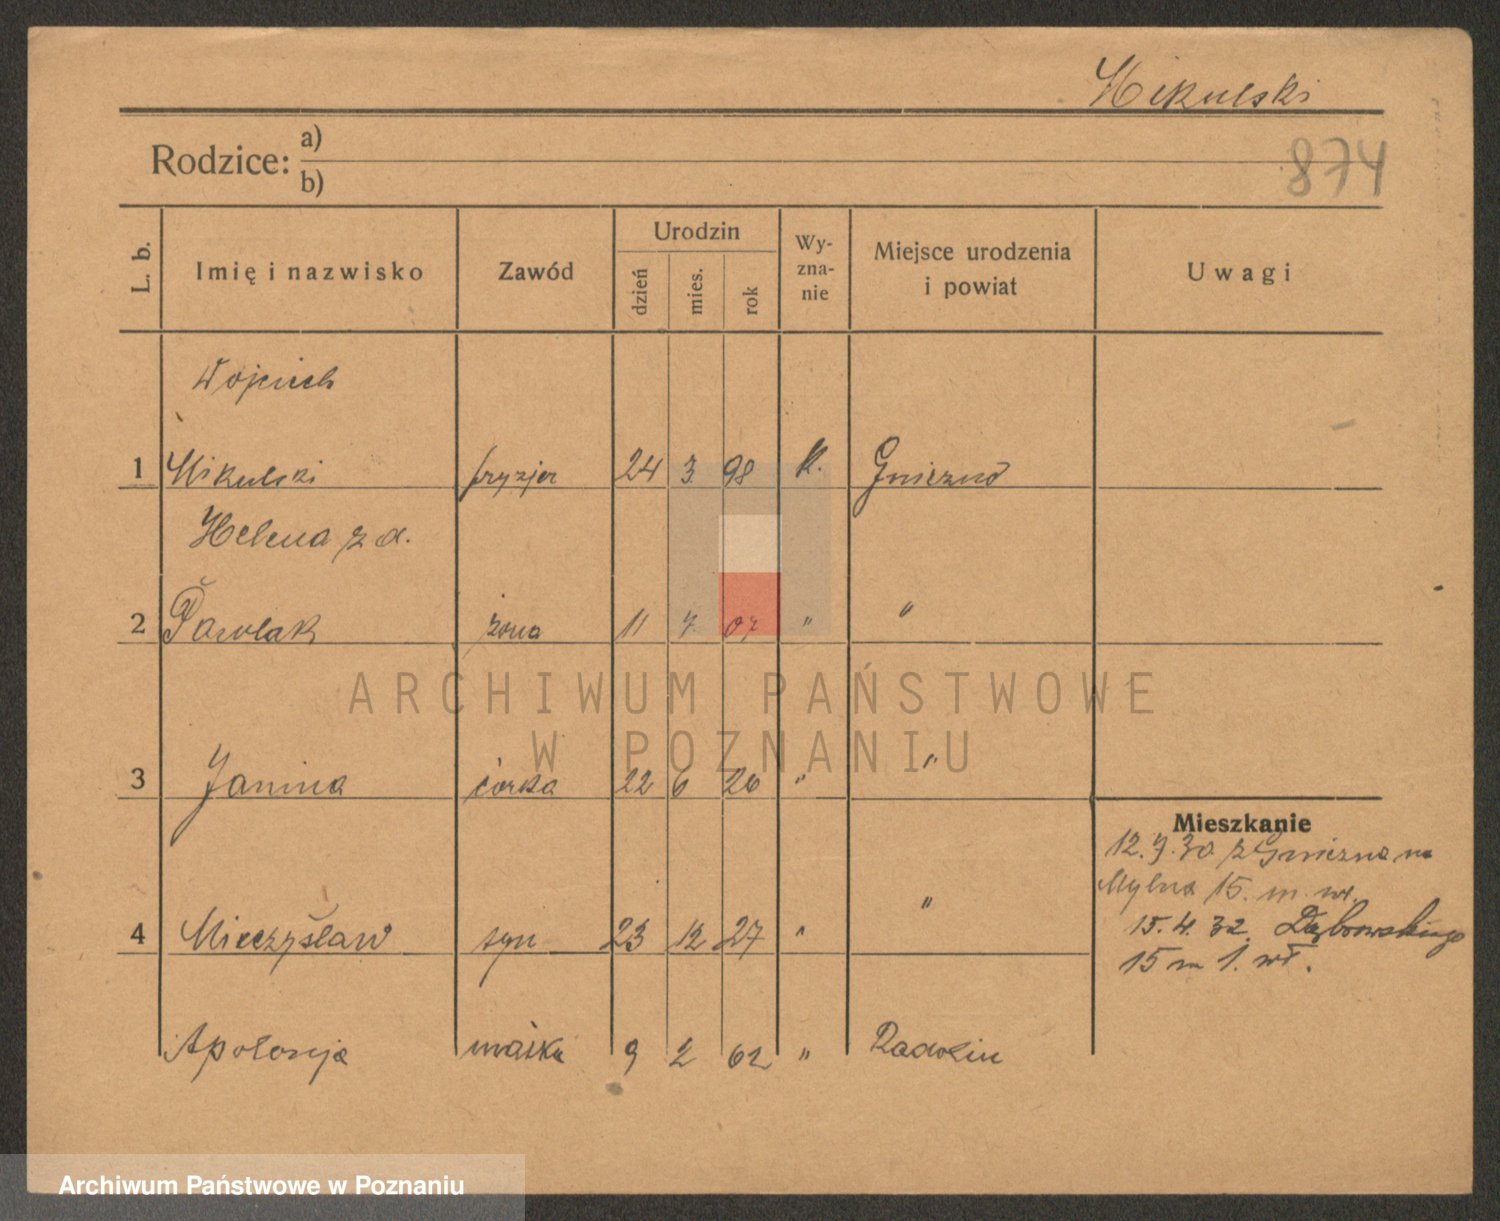 Mikulski
Rodzice: a)
b)
874
L. b.
Imię i nazwisko
Zawód
Urodzin
dzień
mies.
rok
Wy-
zna-
nie
Miejsce urodzenia
i powiat
Uwagi
Wojciech
1 Mikulski fryzjer 24 3 98 k. Gniezno
Helena z d.
2 Pawlak żona 11 7 07 " "
ARCHIWUM PAŃSTWOWE
W POZNANIU
3 Janina córka 22 6 26 " "
Mieszkanie
12.7.30 z Gniezna na
Mylna 15. m. wł.
4 Mieczysław syn 23 12 27 " "
15.4.32. Dąbrowskiego
15 m 1. wł.
Apolonja matka 9 2 62 " Radolin
Archiwum Państwowe w Poznaniu